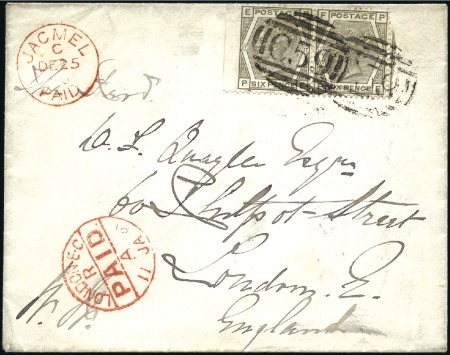 JACMEL
C
DE 25
PAID
E POSTAGE P
F POSTAGE P
C59
P SIX PENCE E
SIX PENCE F
W. L. Quaglen Esqre
60 Philpot-Street
London. E.
England
LONDON-E.C
R
PAID
A
11 JA